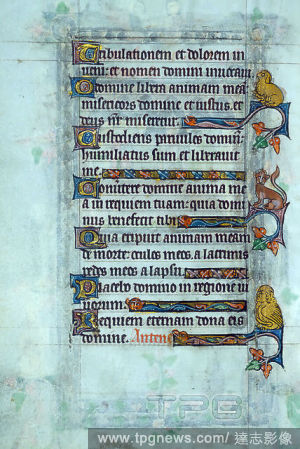 Tribulationem et dolorem in
ueni: et nomen domini inuocaui.
O domine libera animam mea
misericors domine et iustus. et
deus nr̄ miseretur.
Custodiens paruulos domin:
humiliatus sum et liberauit
me.
Conuertere domine anima me
a in requiem tuam: quia domi
nus benefecit tibi.
Quia eripuit animam meam
de morte: oculos meos a lacrimis
pedes meos a lapsu.
Placebo domino in regione ui
uorum.
Requiem eternam dona eis
domine. Anten
TPG
www.tpgnews.com/ 達志影像